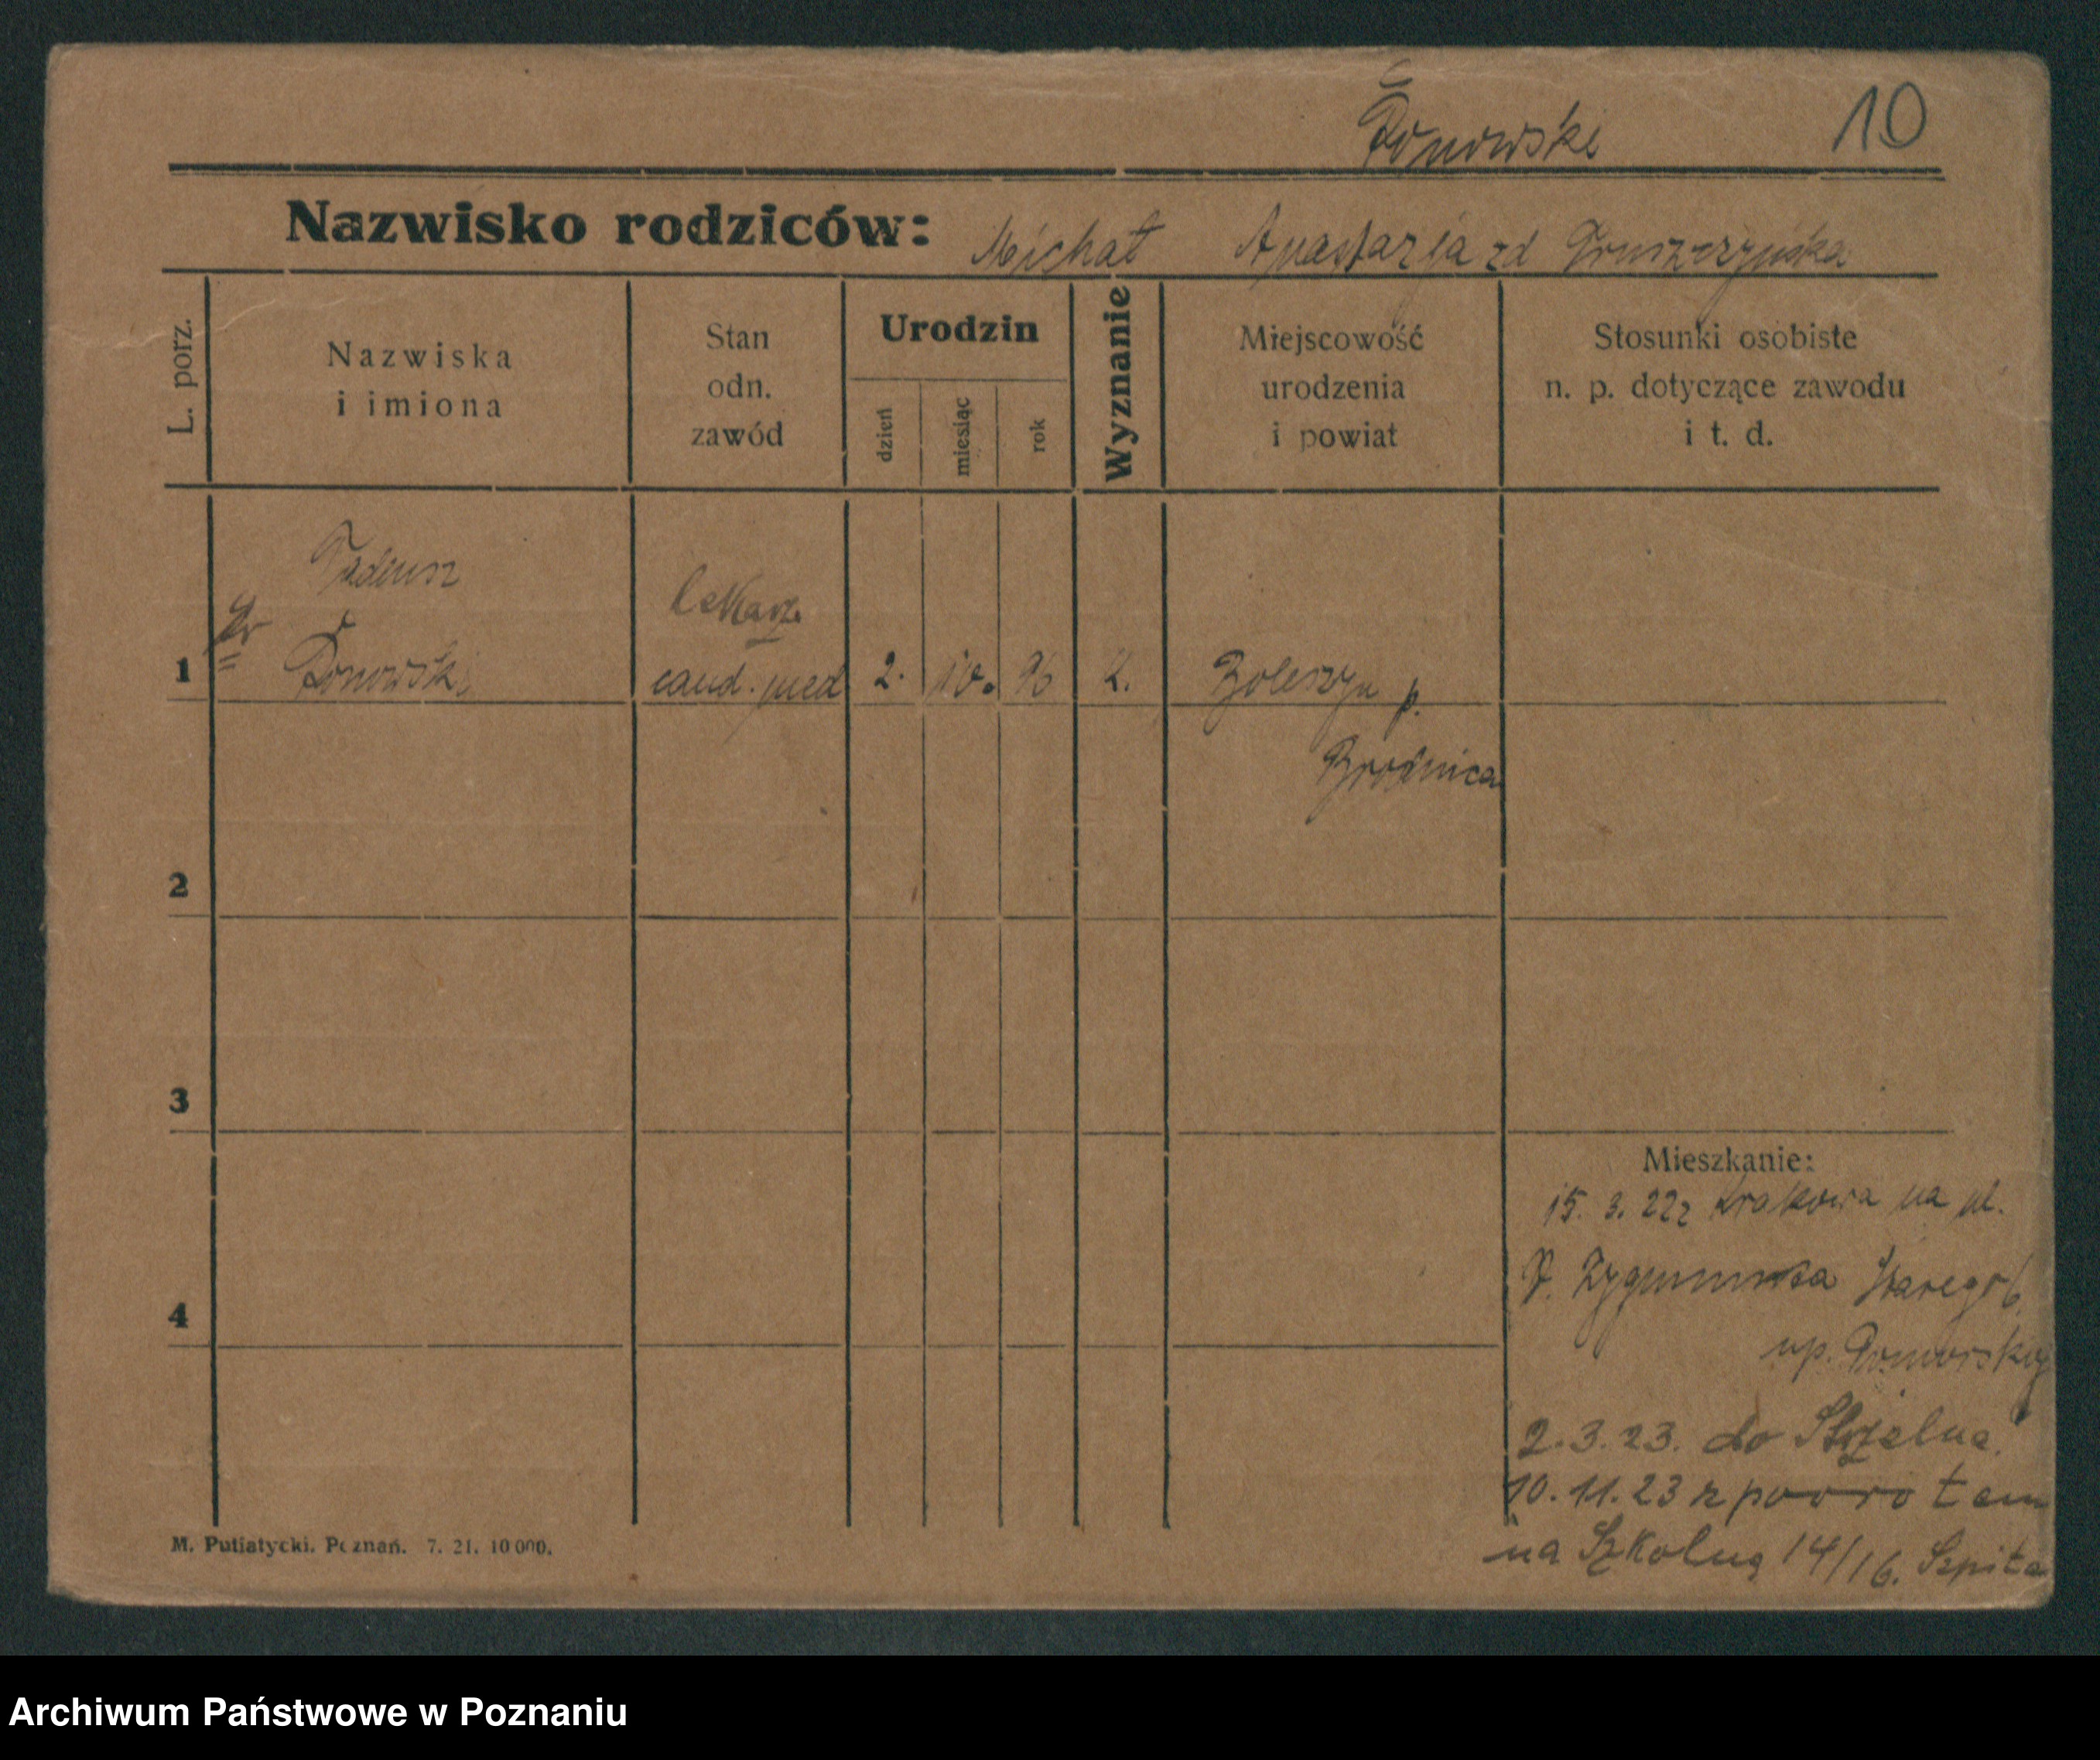 10
Nazwisko rodziców: Michał Anastazja zd Gruszczyńska
L. porz.
Nazwiska
i imiona
Stan
odn.
zawód
Urodzin
dzień
miesiąc
rok
Wyznanie
Miejscowość
urodzenia
i powiat
Stosunki osobiste
n. p. dotyczące zawodu
i t. d.
Tadeusz
Dr
lekarz
1 cand. med 2. 10. 96 k. Boleszyn p.
Brodnica
2
3
4
Mieszkanie:
15. 3. 22 z Krakowa na ul.
Zygmunta Starego
np.
2. 3. 23. do Strzelna.
10. 11. 23 z powro tem
na Szkolną 14/16. Szpital
M. Putiatycki. Poznań. 7. 21. 10 000.
Archiwum Państwowe w Poznaniu